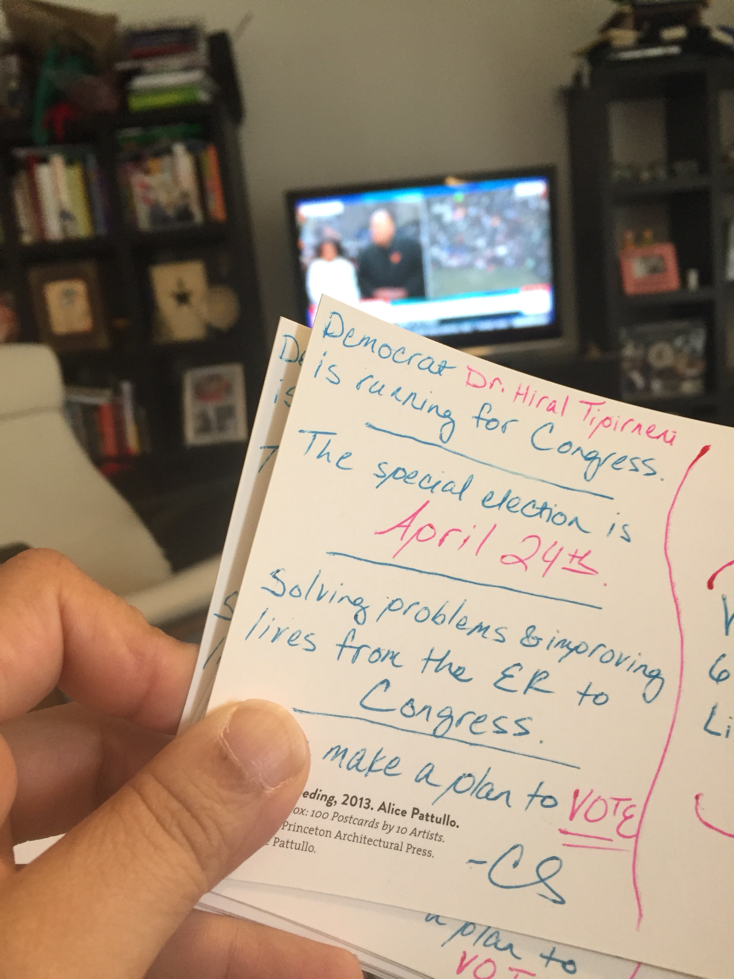 Democrat Dr. Hiral Tipirneni
is running for Congress.
The special election is
April 24th.
Solving problems & improving
lives from the ER to
Congress.
make a plan to VOTE
-CS
eding, 2013. Alice Pattullo.
ox: 100 Postcards by 10 Artists.
Princeton Architectural Press.
Pattullo.
D
is
T
S
l
V
6
Li
a plan to
VOT